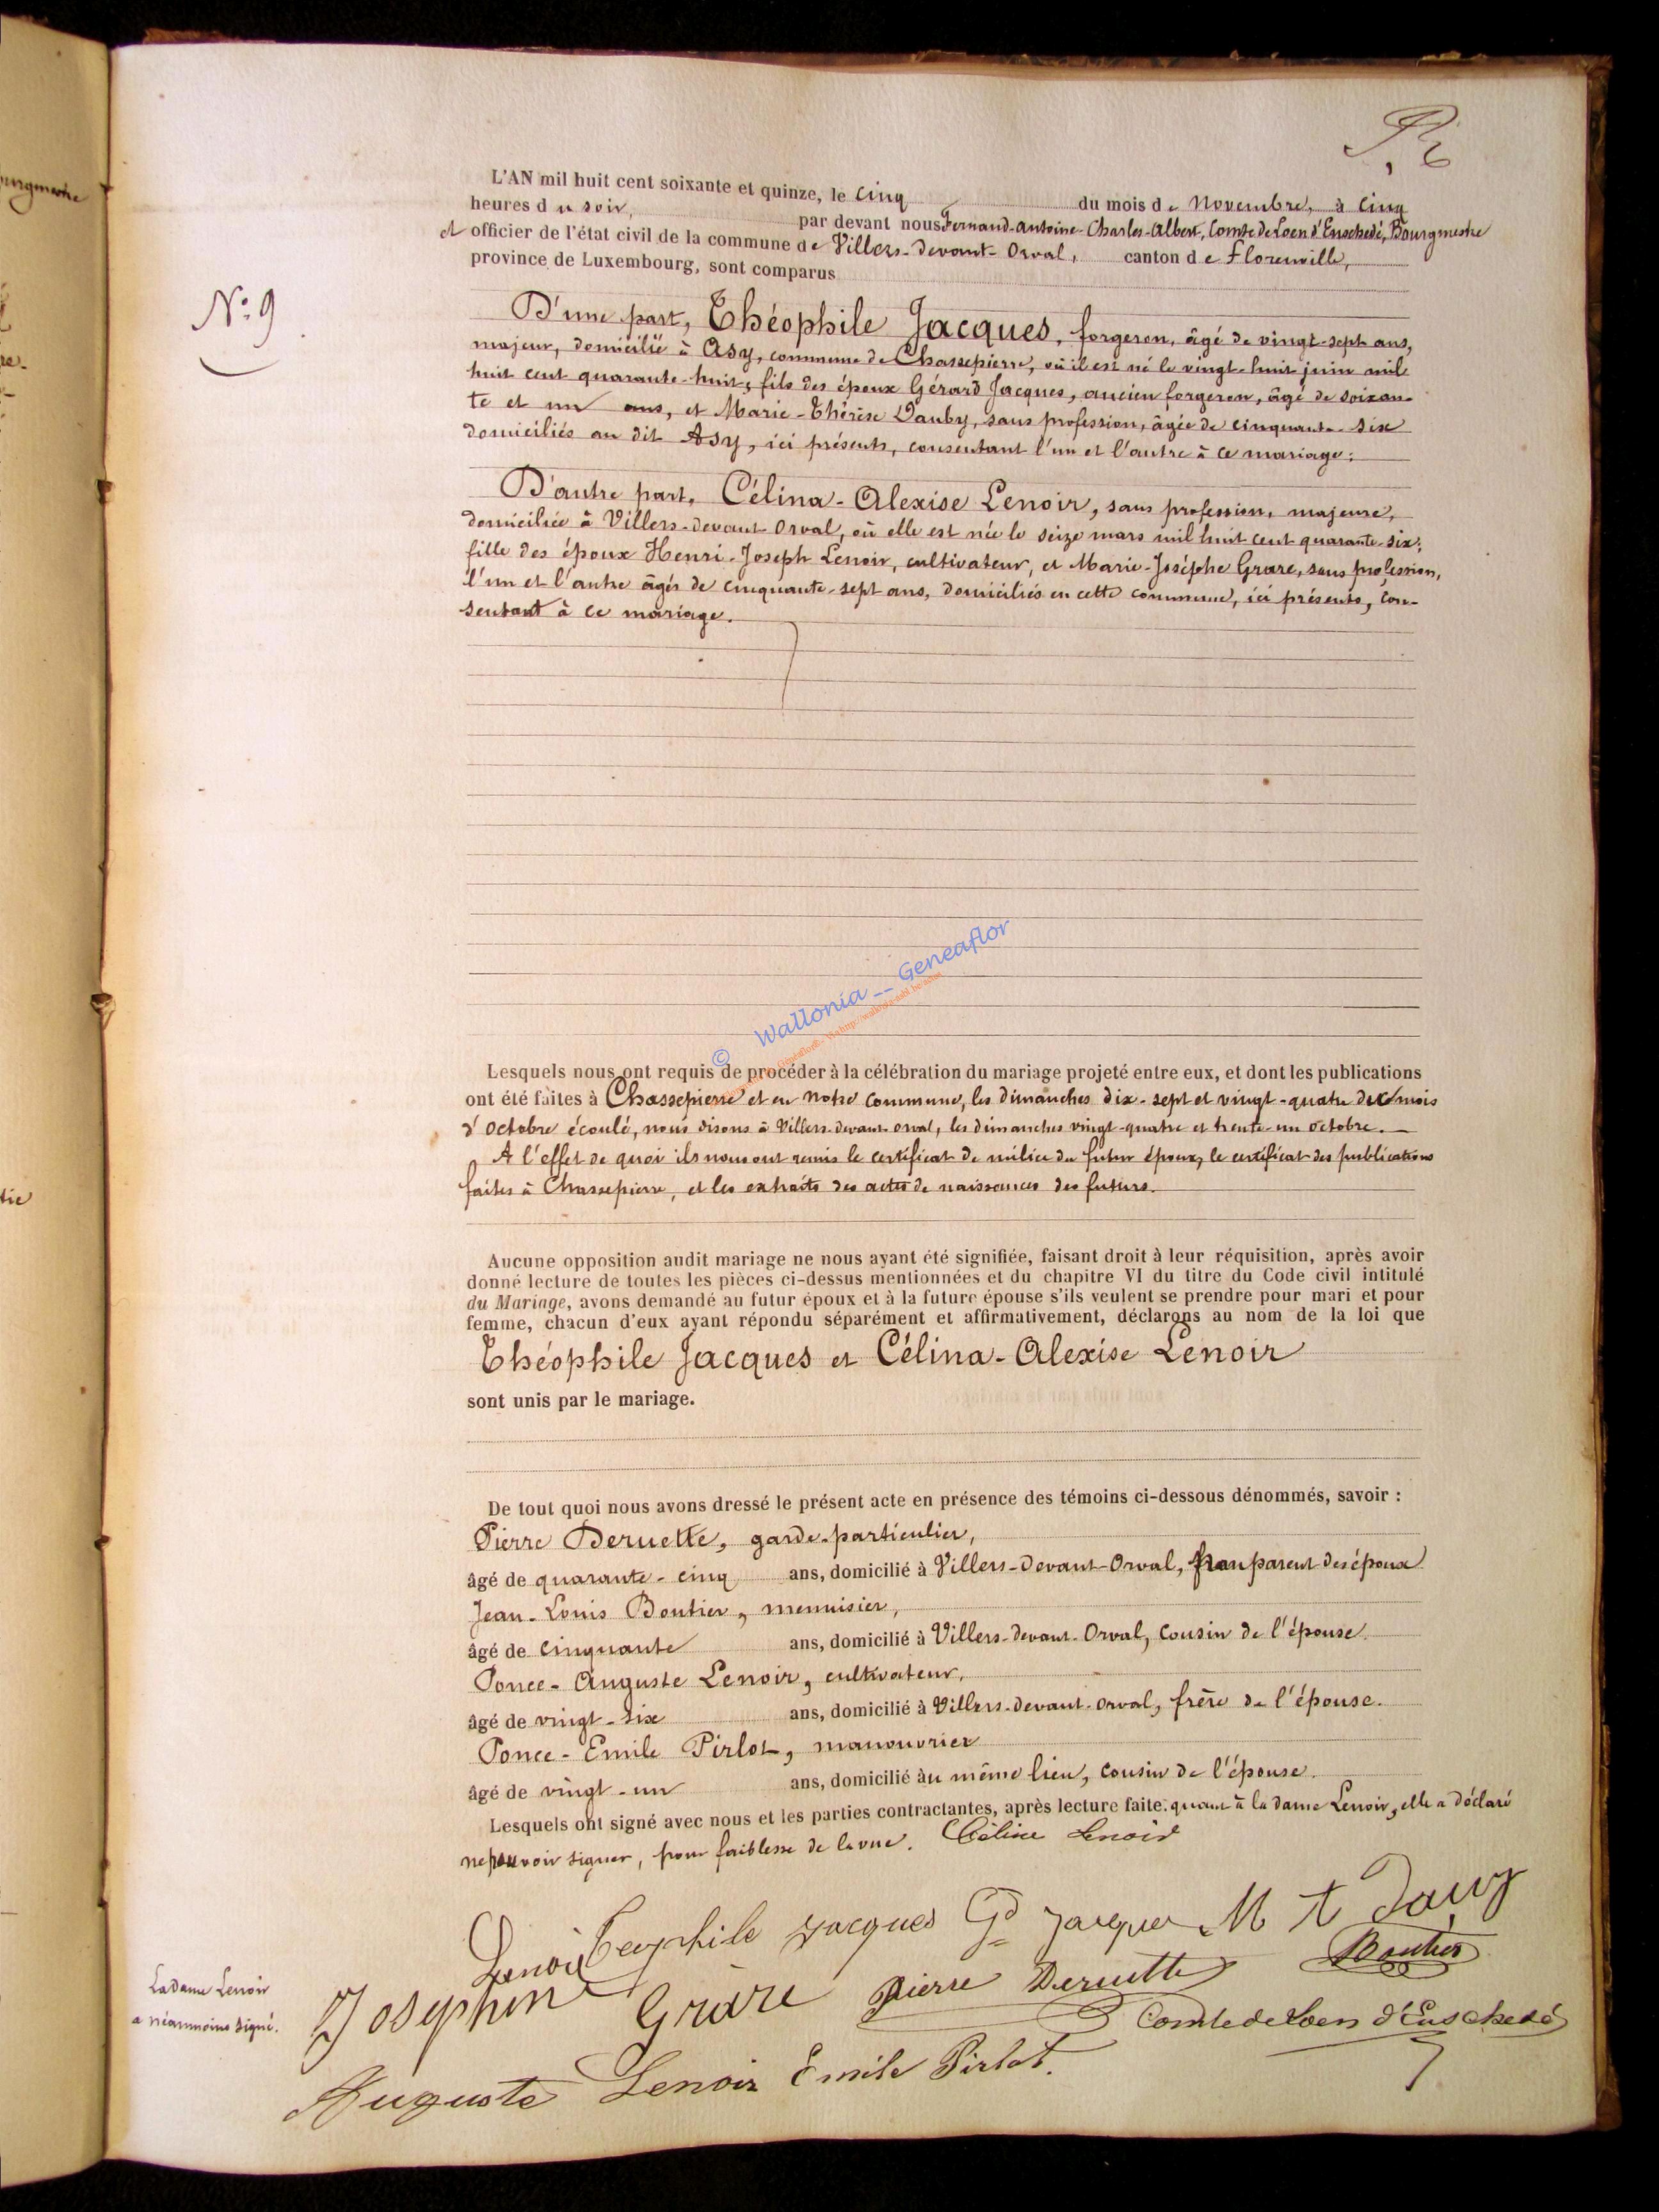 N° 9
L'AN mil huit cent soixante et quinze, le cinq du mois de Novembre, à cinq
heures du soir, par devant nous Fernand-Antoine-Charles-Albert, Comte de Loen d'Enschedé, Bourgmestre
et officier de l'état civil de la commune de Villers-devant-Orval, canton de Florenville,
province de Luxembourg, sont comparus
D'une part, Théophile Jacques, forgeron, âgé de vingt-sept ans,
majeur, domicilié à Asy, commune de Chassepierre, où il est né le vingt-huit juin mil
huit cent quarante-huit; fils des époux Gérard Jacques, ancien forgeron, âgé de soixan-
te et un ans, et Marie-Thérèse Dauby, sans profession, âgée de cinquante-six
domiciliés au dit Asy, ici présents, consentant l'un et l'autre à ce mariage;
D'autre part, Célina-Alexise Lenoir, sans profession, majeure,
domiciliée à Villers-devant-Orval, où elle est née le seize mars mil huit cent quarante-six;
fille des époux Henri-Joseph Lenoir, cultivateur, et Marie-Josèphe Grare, sans profession,
l'un et l'autre âgés de cinquante-sept ans, domiciliés en cette commune, ici présents, con-
sentant à ce mariage.
© Wallonia __ Geneaflor
Lesquels nous ont requis de procéder à la célébration du mariage projeté entre eux, et dont les publications
ont été faites à Chassepierre et en notre commune, les dimanches dix-sept et vingt-quatre du mois
d'octobre écoulé, nous disons à Villers-devant-Orval, les dimanches vingt-quatre et trente-un octobre.
A l'effet de quoi ils nous ont remis le certificat de milice du futur époux, le certificat des publications
faites à Chassepierre, et les extraits des actes de naissances des futurs.
Aucune opposition audit mariage ne nous ayant été signifiée, faisant droit à leur réquisition, après avoir
donné lecture de toutes les pièces ci-dessus mentionnées et du chapitre VI du titre du Code civil intitulé
du Mariage, avons demandé au futur époux et à la future épouse s'ils veulent se prendre pour mari et pour
femme, chacun d'eux ayant répondu séparément et affirmativement, déclarons au nom de la loi que
Théophile Jacques et Célina-Alexise Lenoir
sont unis par le mariage.
De tout quoi nous avons dressé le présent acte en présence des témoins ci-dessous dénommés, savoir :
Pierre Deruette, garde-particulier,
âgé de quarante-cinq ans, domicilié à Villers-devant-Orval, non parent des époux
Jean-Louis Boutier, menuisier,
âgé de cinquante ans, domicilié à Villers-devant-Orval, cousin de l'épouse.
Ponce-Auguste Lenoir, cultivateur,
âgé de vingt-six ans, domicilié à Villers-devant-Orval, frère de l'épouse.
Ponce-Emile Pirlot, manouvrier
âgé de vingt-un ans, domicilié au même lieu, cousin de l'épouse.
Lesquels ont signé avec nous et les parties contractantes, après lecture faite. quant à la dame Lenoir, elle a déclaré
ne pouvoir signer, pour faiblesse de la vue. Céline Lenoir
Lenoir Teophile Jacques Gd Jacques M T Dauby
La dame Lenoir
a néanmoins signé.
Josephine Grare Pierre Deruette Boutier
Comte de Loen d'Enschedé
Auguste Lenoir Emile Pirlot.